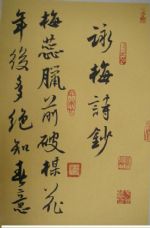 詠梅詩鈔
梅蕊臘前破梅花
年後多絕知春意